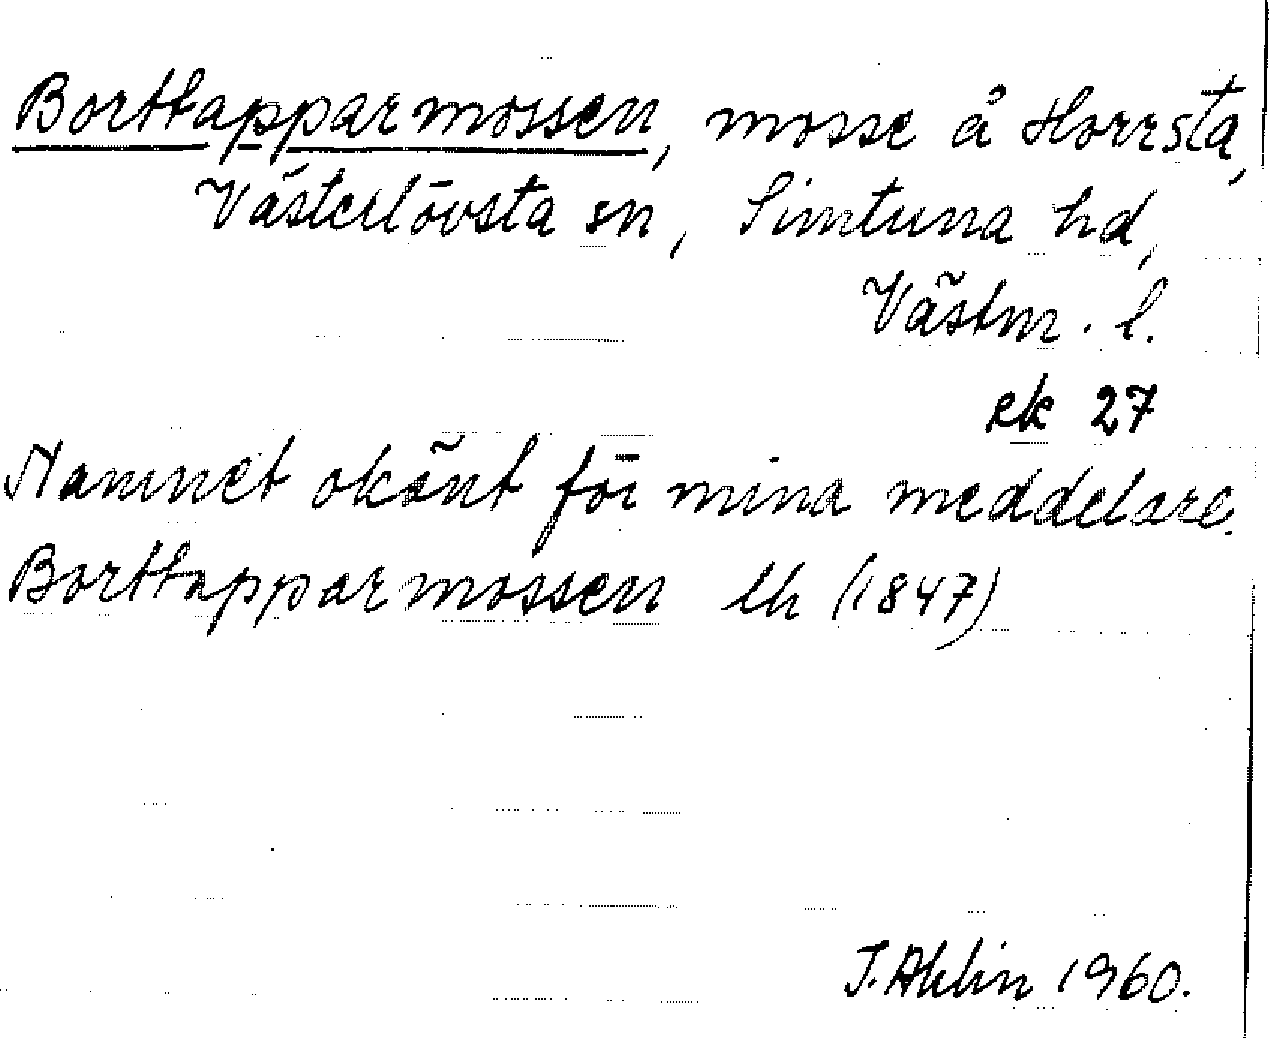 Borttapparmossen, mosse å Horrsta,
Västerlövsta sn, Simtuna hd,
Västm. l.
ek 27
Namnet okänt för mina meddelare.
Borttapparmossen lh (1847)
J. Ahlin 1960.